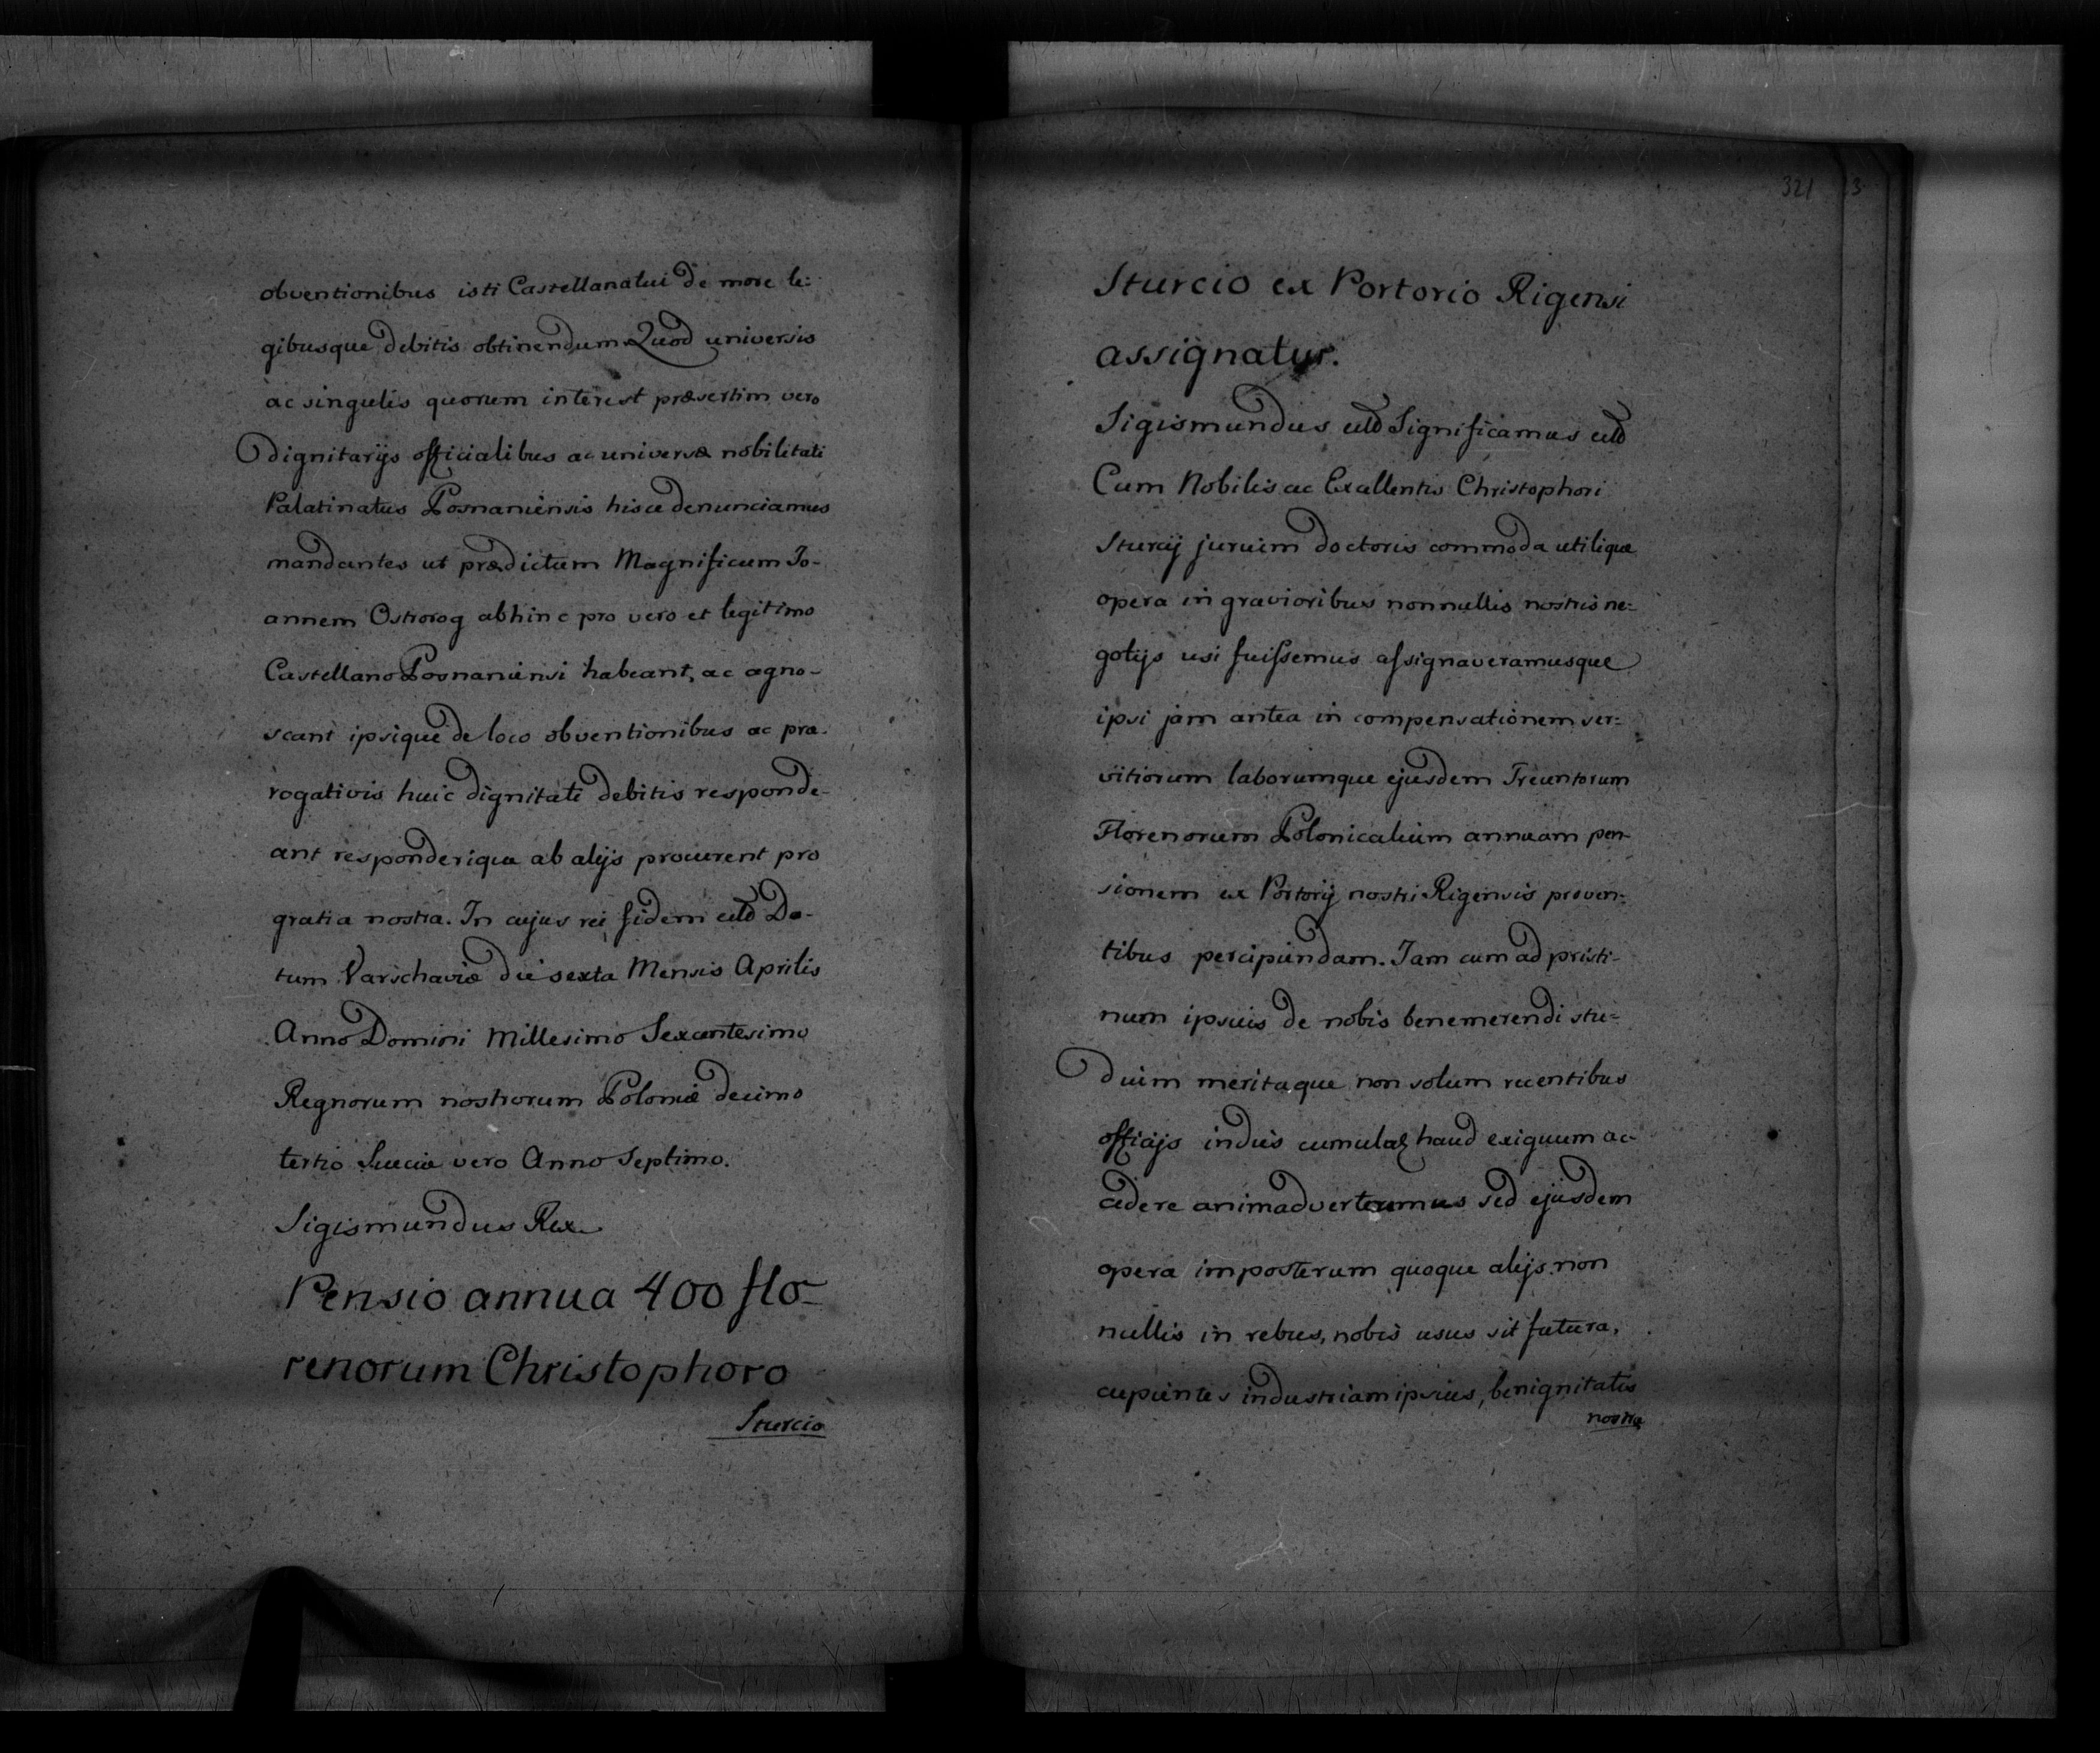 obventionibus isti Castellanatui de more le:
gibusque debitis obtinendum Quod universis
ac singulis quorum interest præsertim vero
dignitarijs officialibus ac universæ nobilitati
Palatinatus Posnaniensis hisce denunciamus
mandantes ut prædictum Magnificum Jo-
annem Ostrorog abhinc pro vero et legitimo
Castellano Posnaniensi habeant, ac agno-
scant ipsique de loco obventionibus ac præ-
rogativis huic dignitati debitis responde-
ant responderique ab alijs procurent pro
gratia nostra. In cujus rei fidem etc Da-
tum Varschaviæ die sexta Mensis Aprilis
Anno Domini Millesimo Sexcentesimo
Regnorum nostrorum Poloniæ decimo
tertio Sueciæ vero Anno Septimo.
Sigismundus Rex
Pensio annua 400 flo-
renorum Christophoro
Sturcio
321 23
Sturcio ex Portorio Rigensi
assignatur.
Sigismundus etc Significamus etc
Cum Nobilis ac Excellentis Christophori
Sturcij jurium doctoris commoda utilique
opera in gravioribus nonnullis nostris ne:
gotijs usi fuissemus assignaveramusque
ipsi jam antea in compensationem ser:
vitiorum laborumque ejusdem Trecentorum
Florenorum Polonicalium annuam pen-
sionem ex Portorij nostri Rigensis proven:
tibus percipiendam. Jam cum ad pristi-
num ipsius de nobis benemerendi stu=
dium meritaque non solum recentibus
officijs indies cumulaq haud exiguum ac-
cedere animadverteremus sed ejusdem
opera imposterum quoque alijs non
nullis in rebus, nobis usus sit futura,
cupientes industriam ipsius, benignitatis
nostræ